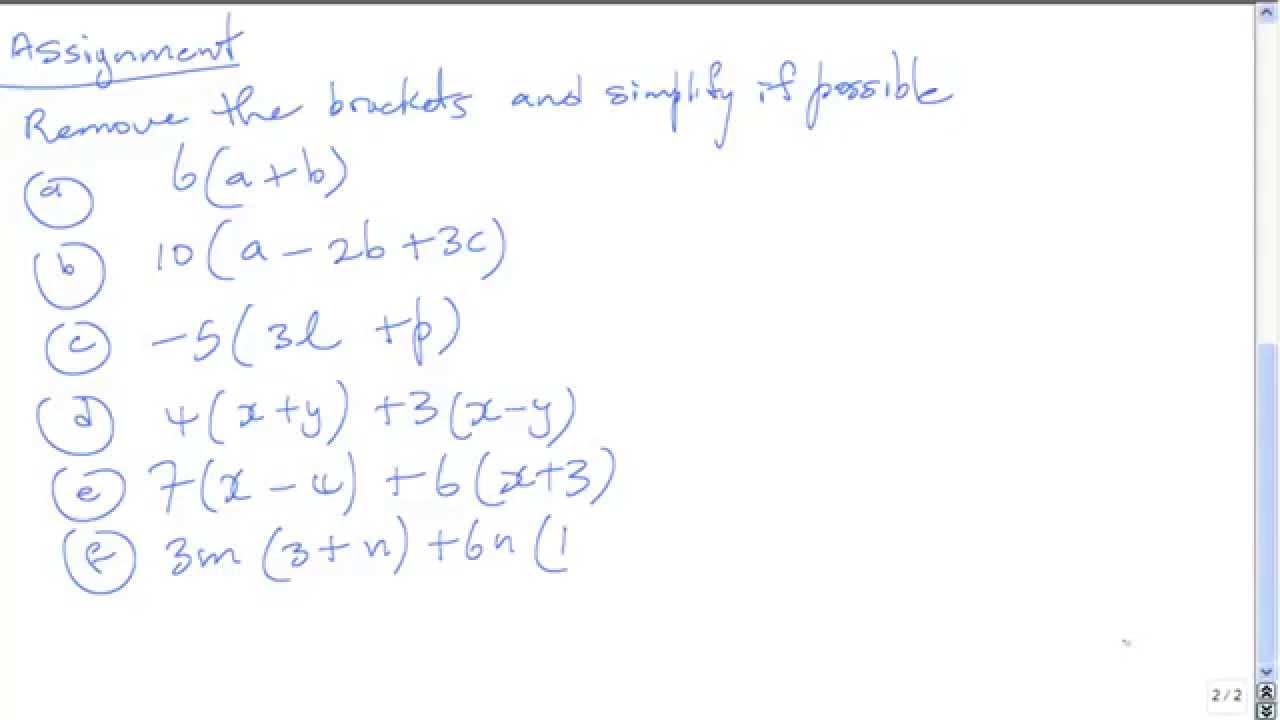 Assignment
Remove the brackets and simplify if possible
a 6(a+b)
b 10(a-2b+3c)
c -5(3l +p)
d 4(x+y) +3(x-y)
e 7(x-4) +6(x+3)
f 3m(3+n) +6n(1
2/2